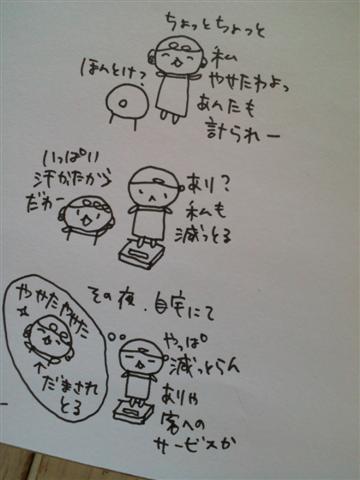 ちょっとちょっと
私
やせたわよっ
あんたも
計られー
ほんとけ?
いっぱい
汗かたから
だわー
あり?
私も
減っとる
その夜、自宅にて
ややたやせた
だまされ
とる
やっぱ
減っとらん
ありゃ
客への
サービスか